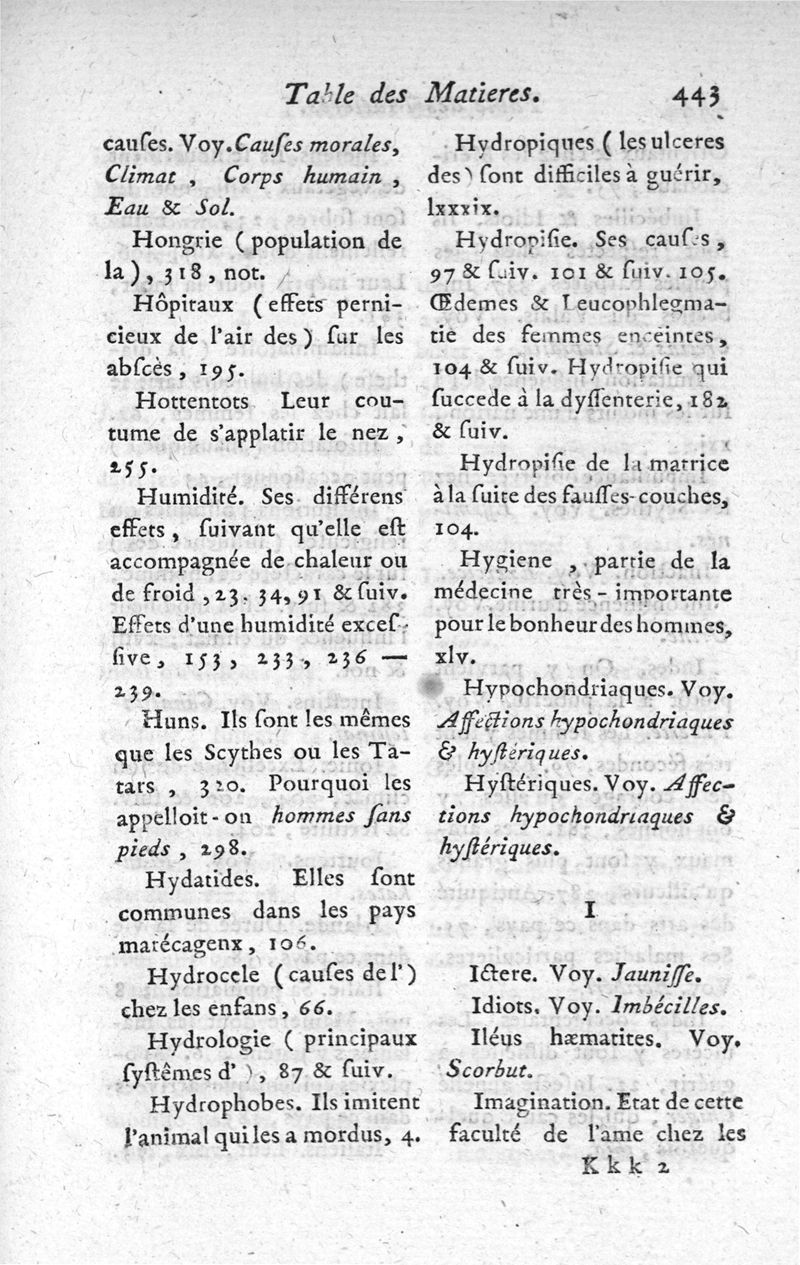 Table des Matieres. 443
cauſes. Voy. Cauſes morales,
Climat , Corps humain ,
Eau & Sol.
Hongrie ( population de
la ) , 318 , not.
Hôpitaux ( effets perni-
cieux de l'air des ) ſur les
abſcès , 195.
Hottentots Leur cou-
tume de s'applatir le nez ,
255.
Humidité. Ses différens
effets , ſuivant qu'elle eſt
accompagnée de chaleur ou
de froid , 23. 34, 91 & ſuiv.
Effets d'une humidité exceſ-
ſive , 153 , 233 , 236 —
239.
Huns. Ils ſont les mêmes
que les Scythes ou les Ta-
tars , 320. Pourquoi les
appelloit-on hommes ſans
pieds , 298.
Hydatides. Elles ſont
communes dans les pays
marécagenx , 106.
Hydrocele ( cauſes de l' )
chez les enfans , 66.
Hydrologie ( principaux
ſyſtêmes d' ) , 87 & ſuiv.
Hydrophobes. Ils imitent
l'animal qui les a mordus, 4.
Hydropiques ( les ulceres
des ) ſont difficiles à guérir,
lxxxix.
Hydropiſie. Ses cauſes ,
97 & ſuiv. 101 & ſuiv. 105.
Œdemes & Leucophlegma-
tie des femmes enceintes,
104 & ſuiv. Hydropiſie qui
ſuccede à la dyſſenterie, 182
& ſuiv.
Hydropiſie de la matrice
à la ſuite des fauſſes-couches,
104.
Hygiene , partie de la
médecine très-importante
pour le bonheur des hommes,
xlv.
Hypochondriaques. Voy.
Affections hypochondriaques
& hyſtériques.
Hyſtériques. Voy. Affec-
tions hypochondriaques &
hyſtériques.
I
Ictere. Voy. Jauniſſe.
Idiots. Voy. Imbécilles.
Iléus hæmatites. Voy.
Scorbut.
Imagination. Etat de cette
faculté de l'ame chez les
Kkk 2